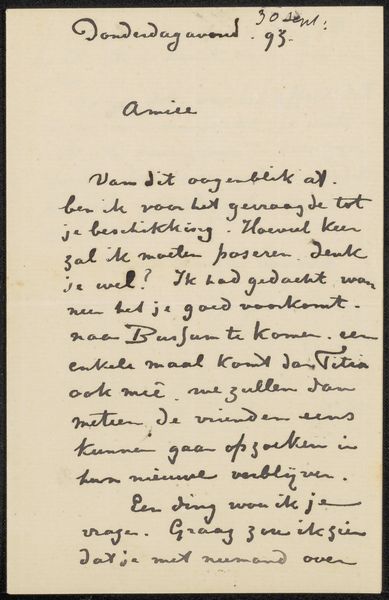 Donderdagavond. 30 sept: 93.
Amice
Van dit oogenblik af
ben ik voor het gevraagde tot
je beschikking. Hoeveel keer
zal ik moeten poseren, denk
je wel? Ik had gedacht, wan
neer het je goed voorkomt.
naar Bussum te komen. een
enkele maal komt dan Titia
ook meê, we zullen dan
meteen, de vrienden eens
kunnen gaan opzoeken in
hun nieuwe verblijven.
Een ding wou ik je
vragen. Graag zou ik zien
dat je met niemand over